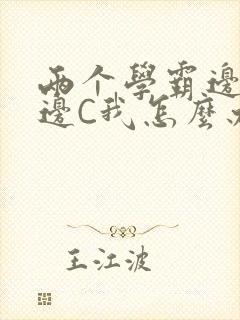 两个學霸邊
邊C我怎麼
王江波